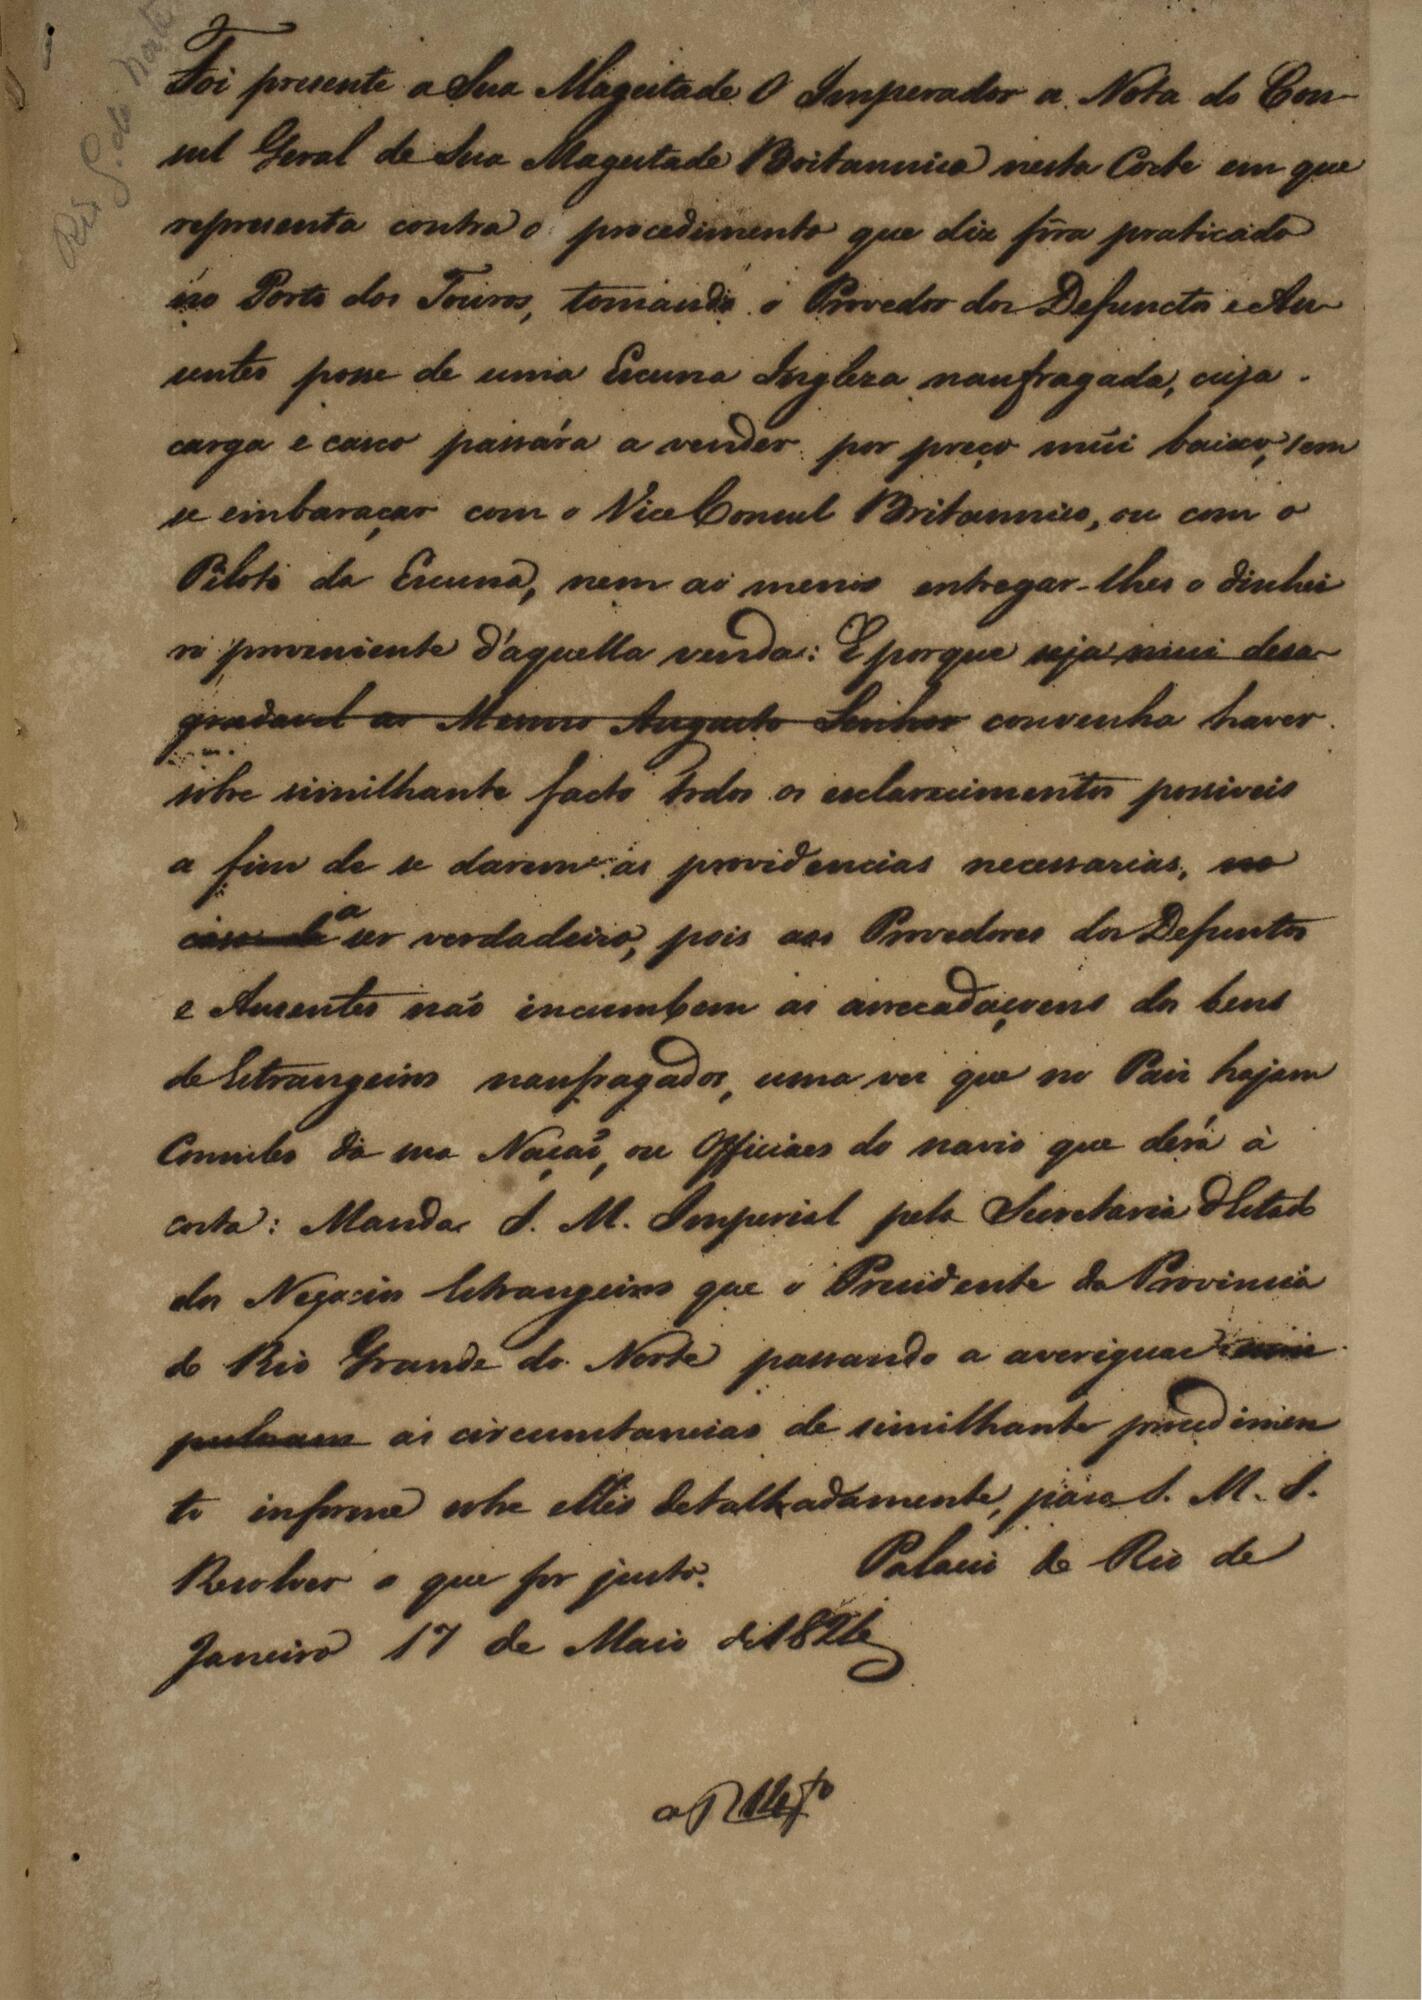 Rio G. do Norte
Foi presente a Sua Magestade O Imperador a Nota do Con-
sul Geral de Sua Magestade Britannica nesta Corte em que
representa contra o procedimento que diz fôra praticado
no Porto dos Touros, tomando o Provedor dos Defunctos e Au-
sentes posse de uma Escuna Ingleza naufragada, cuja
carga e casco passára a vender por preço mui baixo, sem
se embaraçar com o Vice Consul Britannico, ou com o
Piloto da Escuna, nem ao menos entregar-lhes o dinhei
ro proveniente d'aquella venda: E porque seja mui desa-
gradavel ao Mesmo Augusto Senhor convenha haver
sobre similhante facto todos os esclarecimentos possiveis
a fim de se darem as providencias necessarias, no
caso de a ser verdadeiro, pois aos Provedores dos Defuntos
e Ausentes não incumbem as arrecadaçoens dos bens
de Estrangeiros naufragados, uma vez que no Paiz hajam
Consules da sua Nação, ou Officiaes do navio que derá à
costa: Manda S. M. Imperial pela Secretaria d'Estado
dos Negocios Estrangeiros que o Presidente da Provincia
do Rio Grande do Norte passando a averiguar
as circumstancias de similhante procedimen
to informe sobre elles detalhadamente, para S. M. I.
Resolver o que for justo. Palacio do Rio de
Janeiro 17 de Maio de 1826